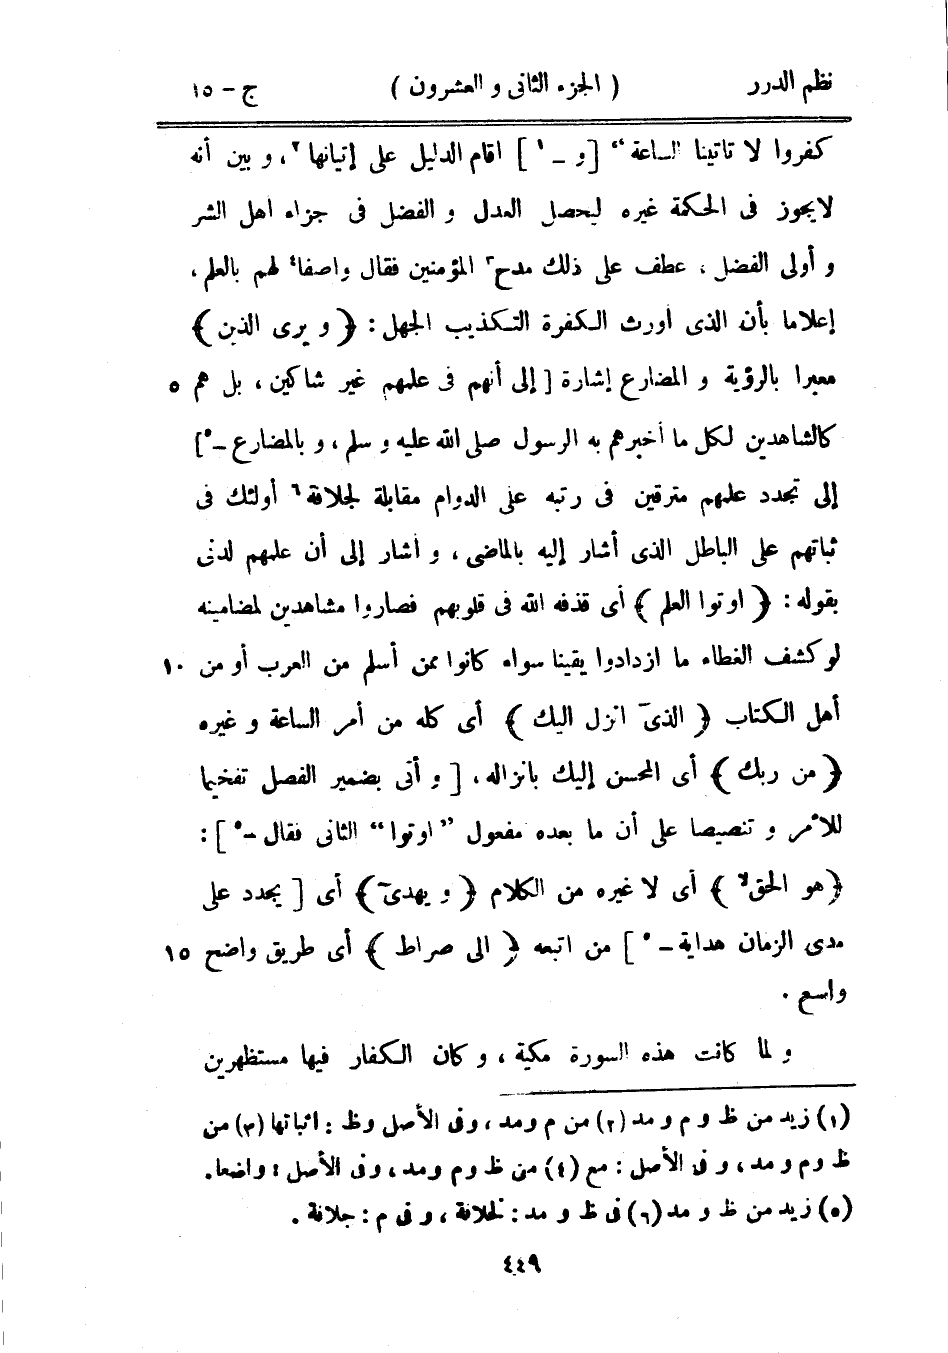 نظم الدرر ( الجزء الثانى و العشرون ) ج - ١٥
كفروا لا تاتينا الساعة“ [ و - ١ ] اقام الدليل على إتيانها ٢ ، و بين أنه
لايجوز فى الحكمة غيره ليحصل العدل و الفضل فى جزاء اهل الشر
و أولى الفضل ، عطف على ذلك مدح ٣ المؤمنين فقال واصفا ٤ لهم بالعلم ،
إعلاما بأن الذى أورث الكفرة التكذيب الجهل : ﴿ و يرى الذين ﴾
معبرا بالرؤية و المضارع إشارة [ إلى أنهم فى علمهم غير شاكين ، بل هم ٥
كالشاهدين لكل ما أخبرهم به الرسول صلى الله عليه و سلم ، و بالمضارع - ٥ ]
إلى تجدد علمهم مترقين فى رتبه على الدوام مقابلة لجلافة ٦ أولئك فى
ثباتهم على الباطل الذى أشار إليه بالماضى ، و أشار إلى أن علمهم لدنى
بقوله : ﴿ اوتوا العلم ﴾ أى قذفه الله فى قلوبهم فصاروا مشاهدين لمضامينه
لو كشف الغطاء ما ازدادوا يقينا سواء كانوا ممن أسلم من العرب أو من ١٠
أهل الكتاب ﴿ الذىٓ انزل اليك ﴾ أى كله من أمر الساعة و غيره
﴿ من ربك ﴾ أى المحسن إليك بانزاله ، [ و أتى بضمير الفصل تفخيما
للأمر و تنصيصا على أن ما بعده مفعول ”اوتوا“ الثانى فقال - ٥ ] :
﴿ هو الحق لا ﴾ أى لا غيره من الكلام ﴿ و يهدىٓ ﴾ أى [ يجدد على
مدى الزمان هداية - ٥ ] من اتبعه ﴿ الى صراط ﴾ أى طريق واضح ١٥
واسع .
و لما كانت هذه السورة مكية ، و كان الكفار فيها مستظهرين
(١) زيد من ظ و م و مد (٢) من م و مد ، وفى الأصل وظ : اثباتها (٣) من
ظ وم و مد ، و فى الأصل : مع (٤) من ظ وم ومد ، وفى الأصل : واضعا .
(٥) زيد من ظ و مد (٦) فى ظ و مد : لخلافة ، و فى م : جلافة .
٤٤٩